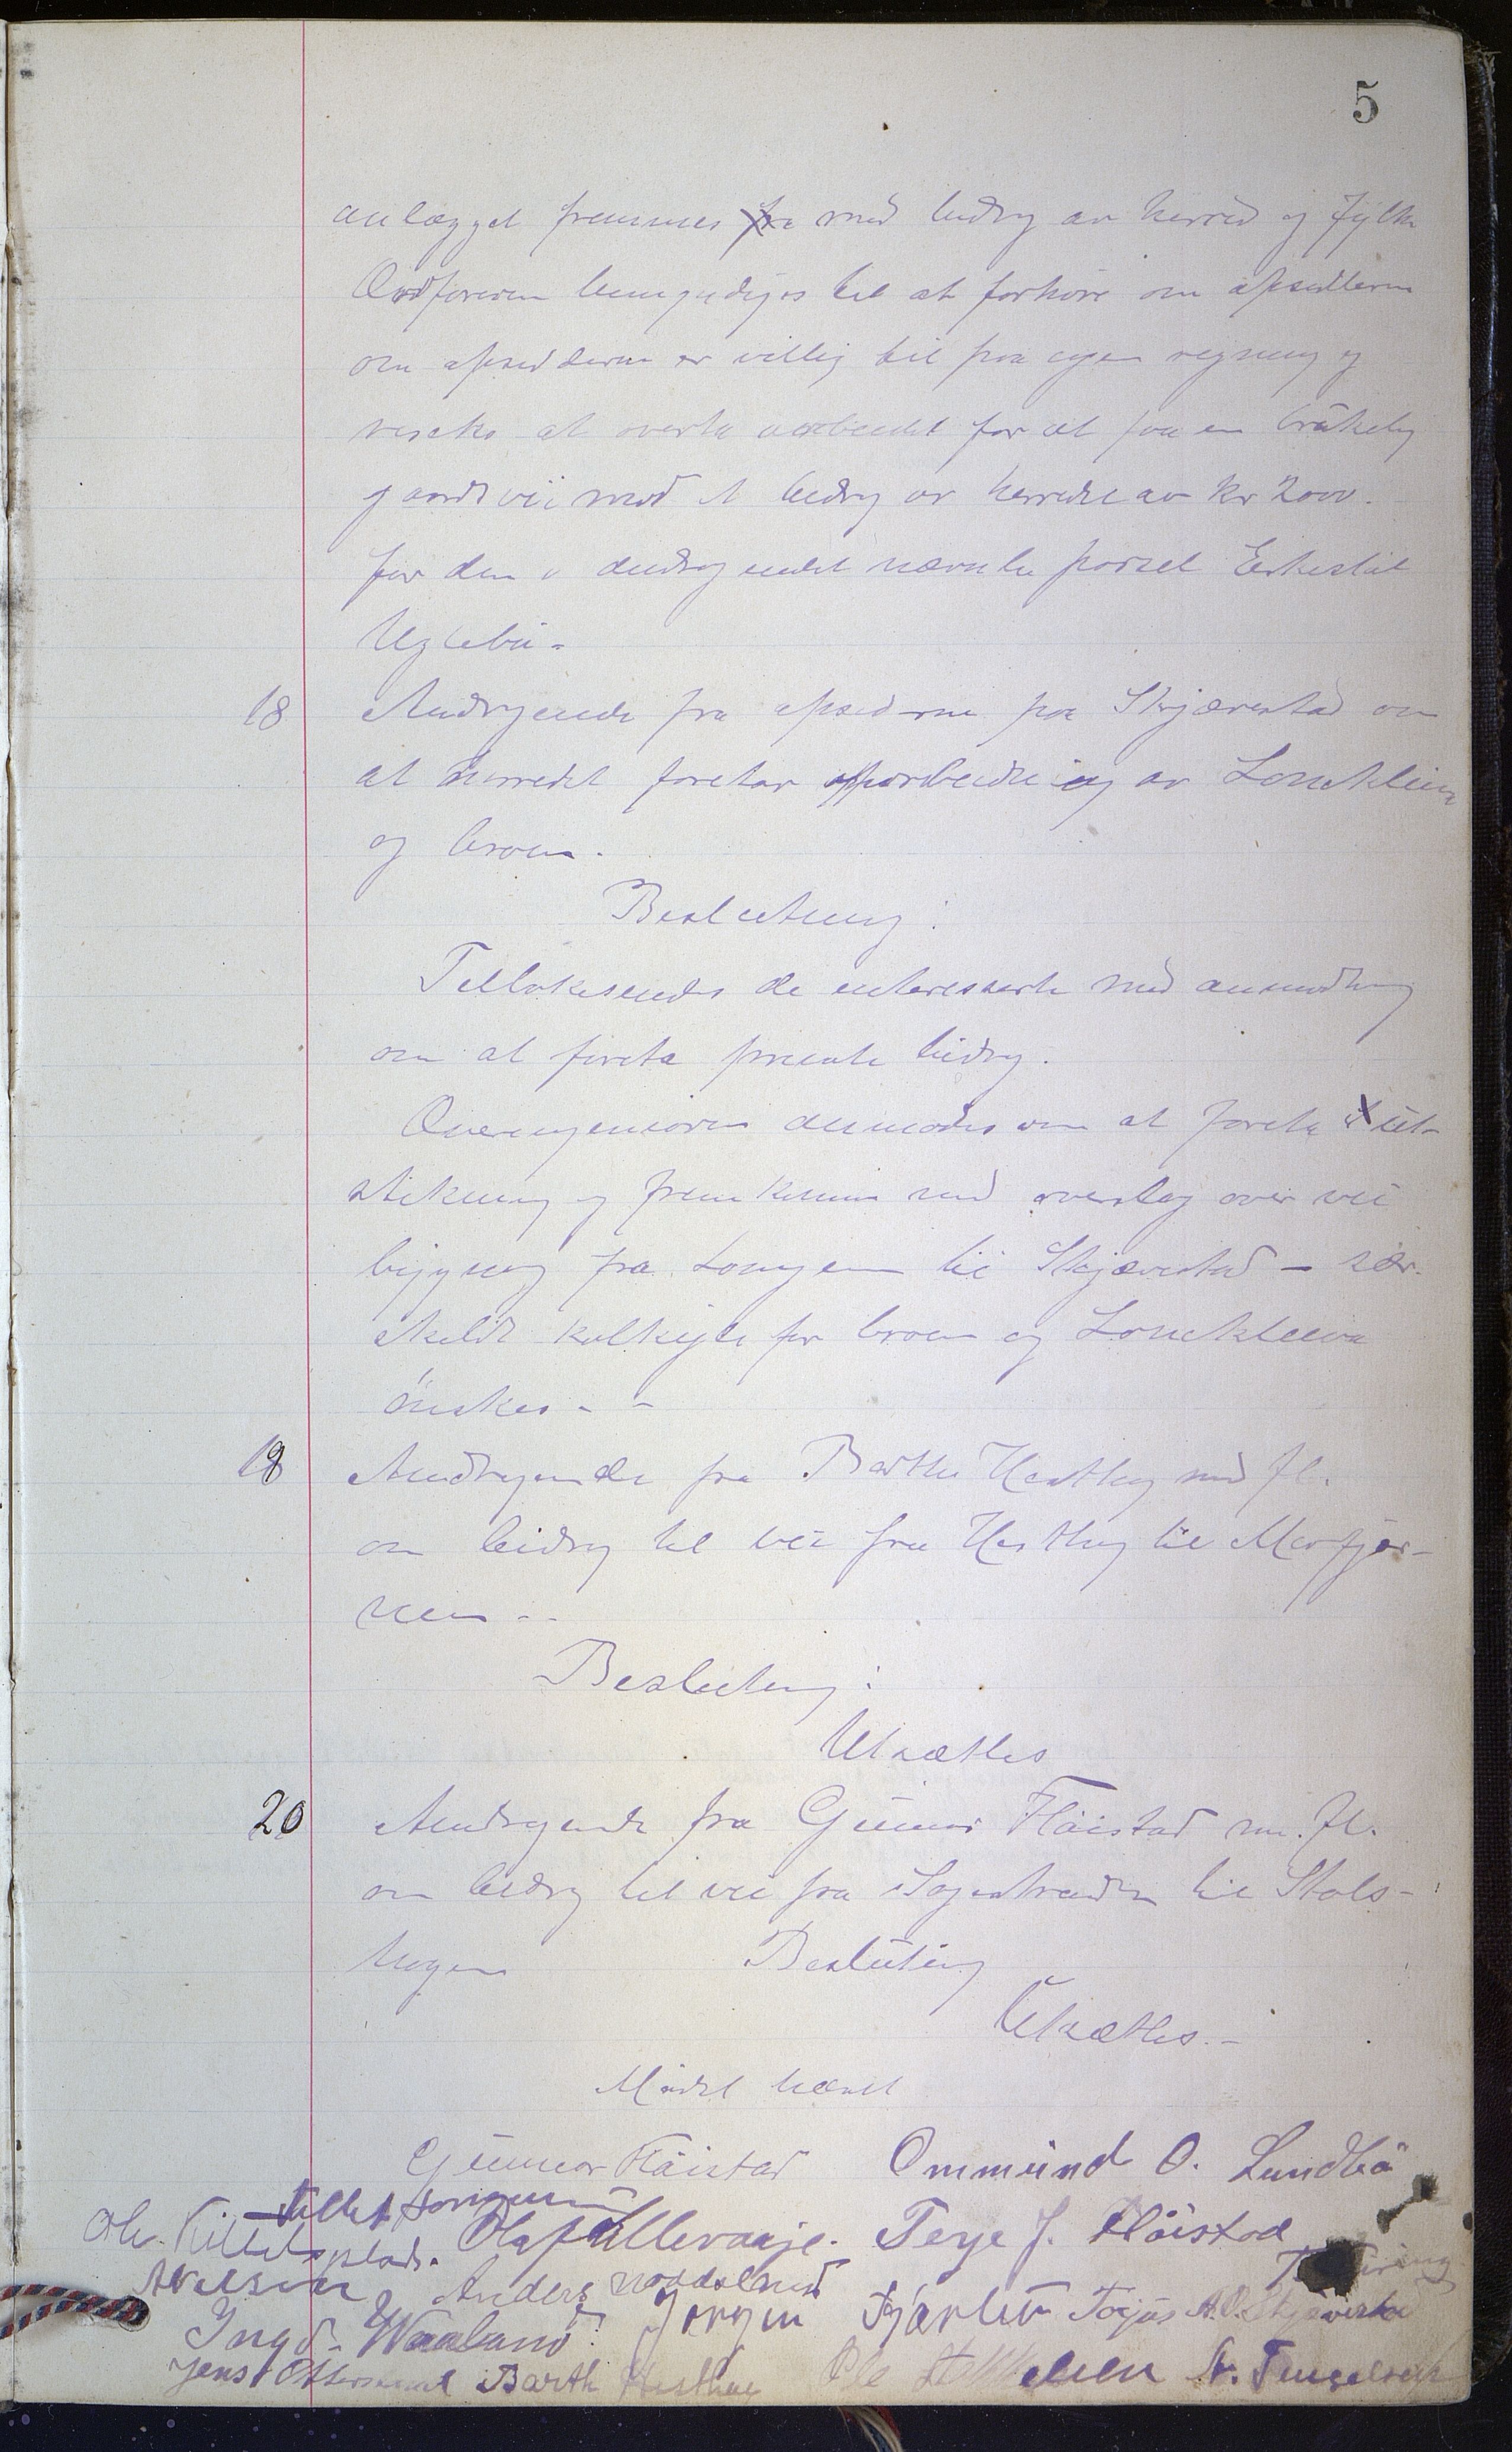 5
anlægget fremmes med bidrag av herred og fylke
Ordføreren bemyndiges til at forhøre om opsidderne
om opsidderne er villig til paa egen regning og
resiko at overta arbeidet for at faa en brukelig
gaardsvei mod et bidrag av herredet av kr 2000.
for den i andragendet nævnte parsel Eikeslåt
Uglebu.
18 Andragende fra opsiderne paa Skjæverstad om
at herredet foretar opparbeiding av Lonekleiva
og broen.
Beslutning:
Tilbakesendes de interesserte med anmodning
om at foreta private bidrag.
Overingeniøren anmodes om at foreta ut-
stikning og fremkomme med overslag over vei
bygning fra Longum til Skjæverstad - sær-
skilt kalkyle for broen og Loneklleiva
ønskes - -
19 Andragende fra Barthe Hesthag med fl.
om bidrag til vei fra Hesthag til Morfjær-
nen - -
Beslutning:
Utsættes
20 Andragende fra Gunnar Fløistad m. fl.
om bidrag til vei fra Sagestranden til Stols-
hagen Beslutning
Utsættes. -
Mødet hævet
Gunnar Fløistad Ommund O. Lundbø
Longum
Ole Kittelsplads. Olaf Ullevaaje. Terje J. Fløistad
A Nelson Anders Noddeland
Ingv. Waaland. Jørgen Fjærbu Tarjus A. O. Skjæverstad
Jens Ottersland Barth Hesthag Ole T. Tengelsen